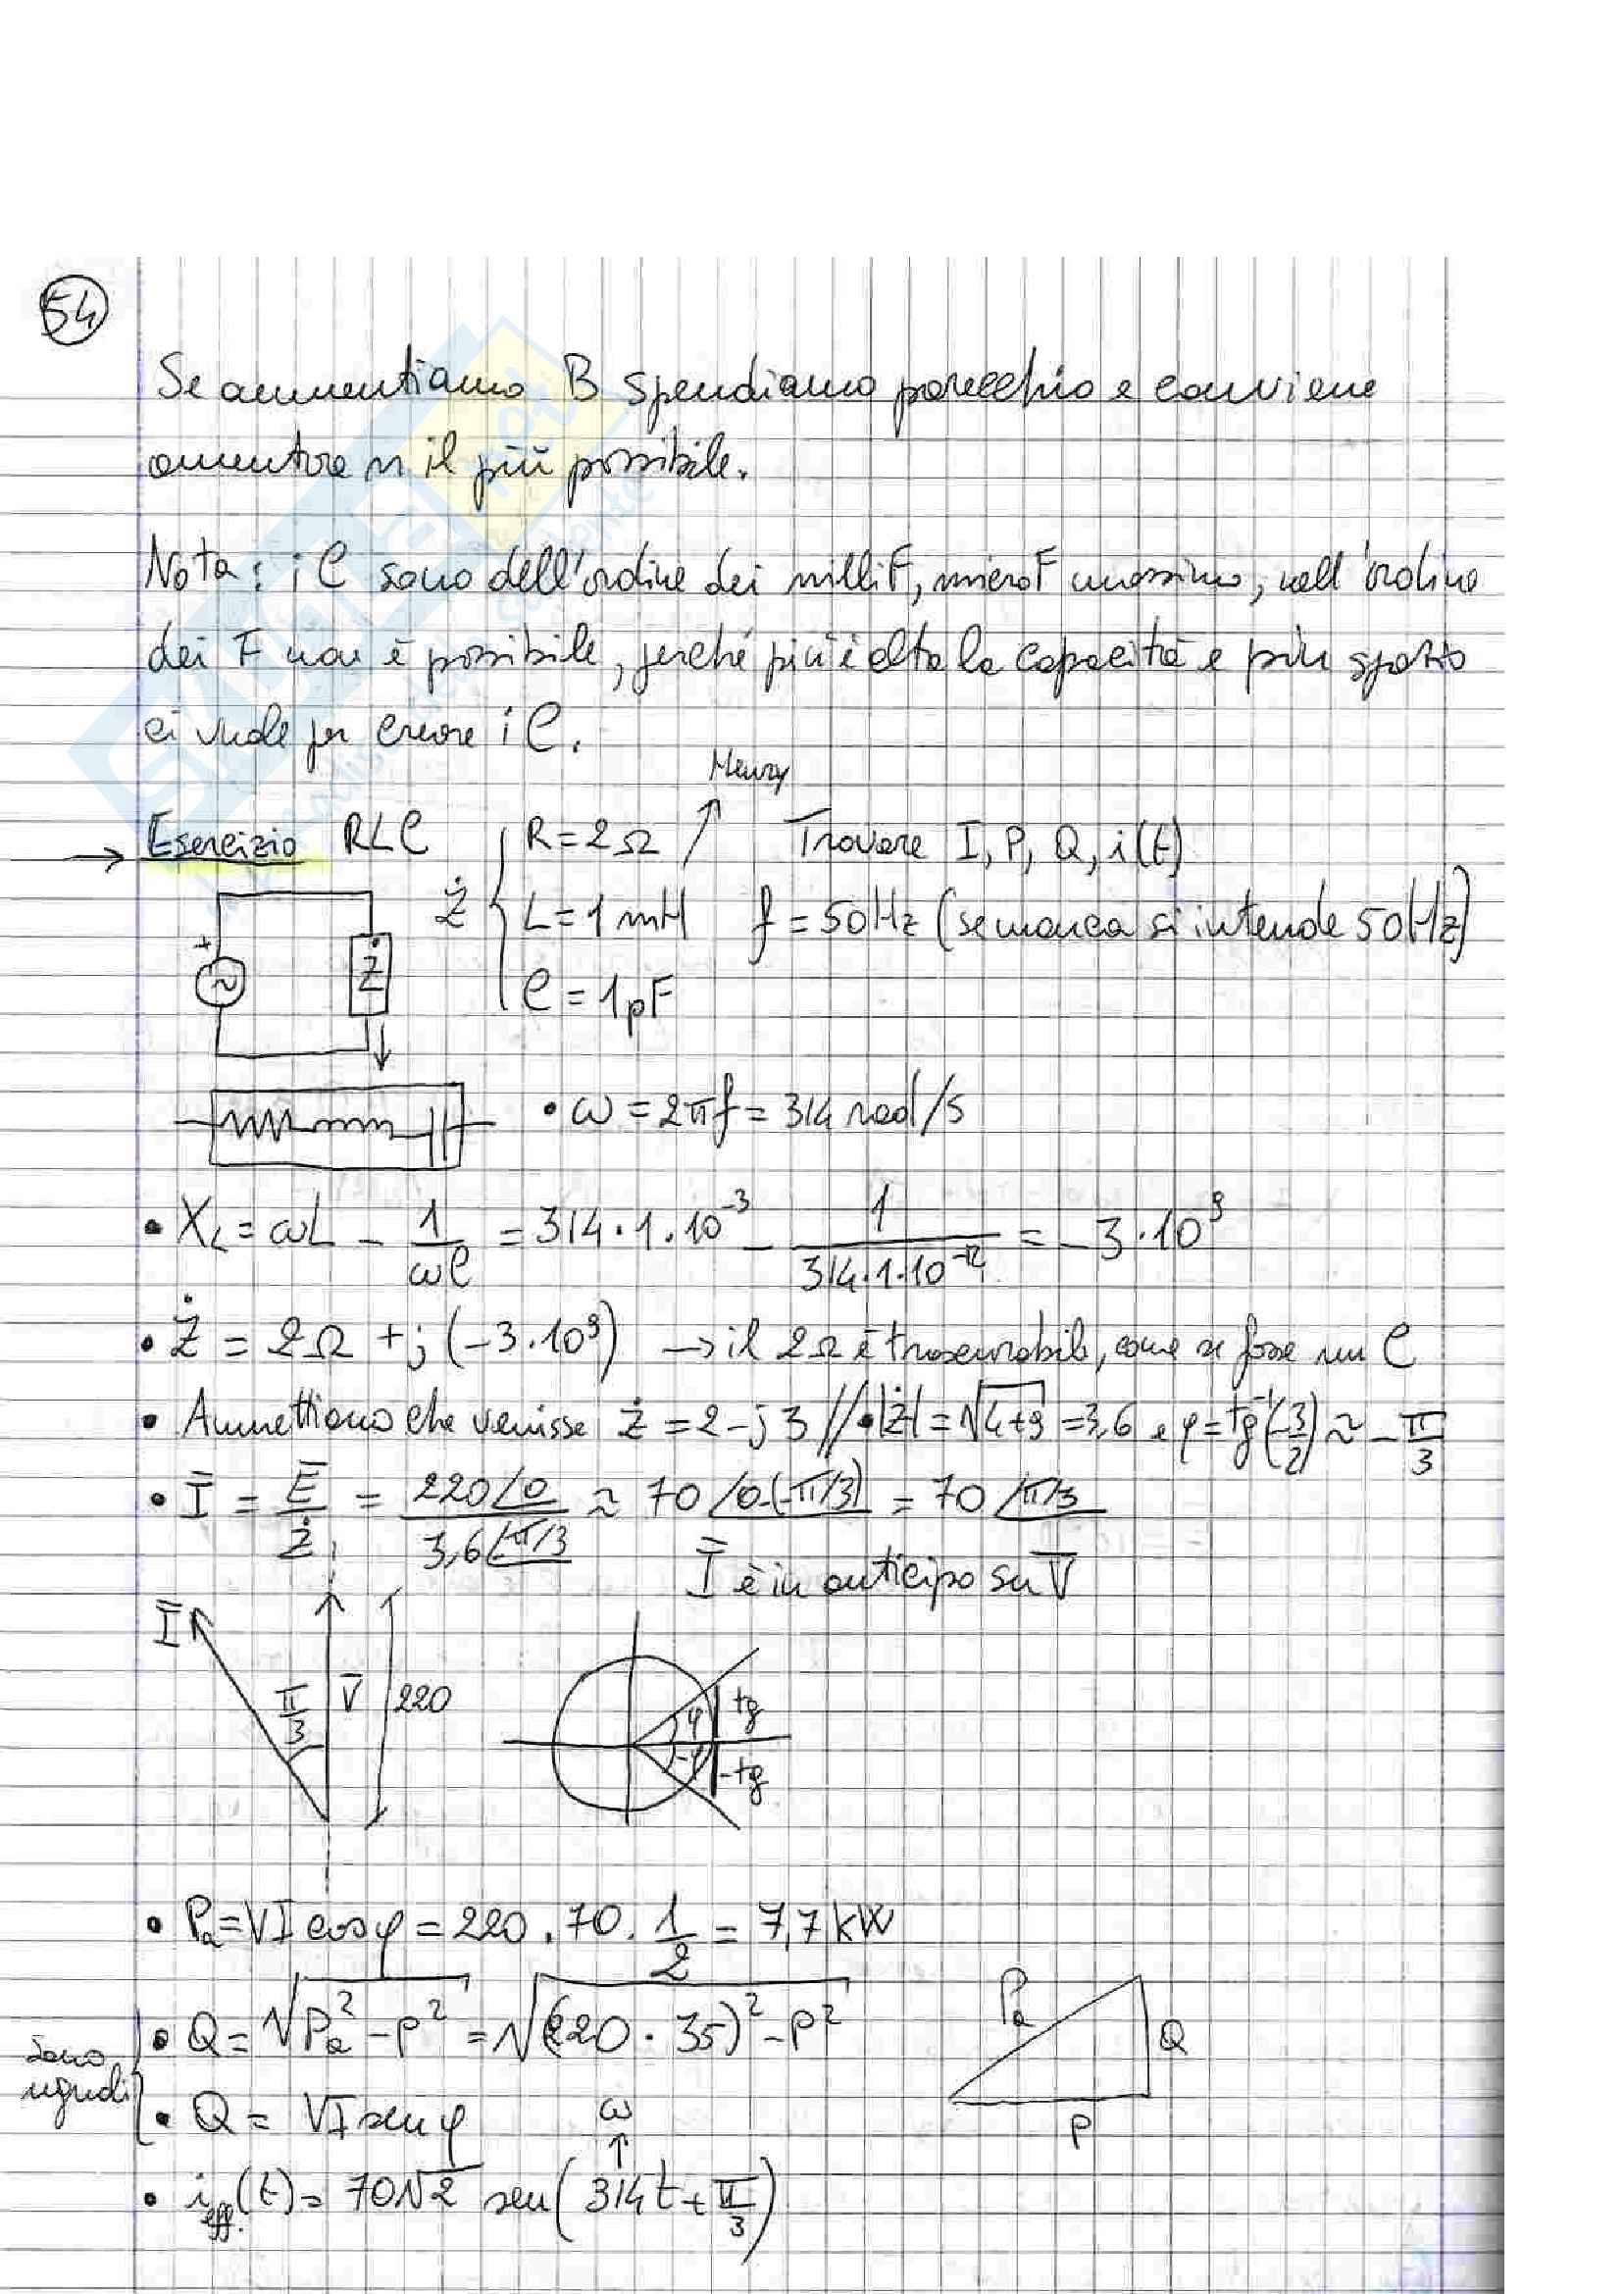 54
Se aumentiamo B spendiamo parecchio e conviene
aumentare n il più possibile.
Nota: i C sono dell'ordine dei milliF, microF massimo, nell'ordine
dei F non è possibile, perché più è alta la capacità e più spazio
ci vuole per creare i C.
Henry
→ Esercizio RLC R=2Ω Trovare I, P, Q, i(t)
Ż L=1mH f=50Hz (se manca si intende 50Hz)
+ ~ Ż C=1pF
• ω=2πf=314 rad/s
• X_L=ωL - 1/ωC = 314·1·10^-3 - 1/(314·1·10^-12) = -3·10^9
• Ż = 2Ω + j(-3·10^9) → il 2Ω è trascurabile, come se fosse un C
• Ammettiamo che venisse Ż = 2-j3 // • |Ż| = √(4+9) = 3,6 e φ = tg^-1(-3/2) ≈ -π/3
• Ī = Ē/Ż = 220∠0 / 3,6∠-π/3 ≈ 70∠0-(-π/3) = 70∠π/3
Ī è in anticipo su V̄
Ī π/3 V̄ 220 φ tg
-φ -tg
• Pa=VI cosφ = 220·70·1/2 = 7,7 kW
• Q = √(Pa²-P²) = √((220·35)²-P²) Pa Q
sono uguali • Q = VI senφ ω P
• i_eff.(t) = 70√2 sen(314t+π/3)